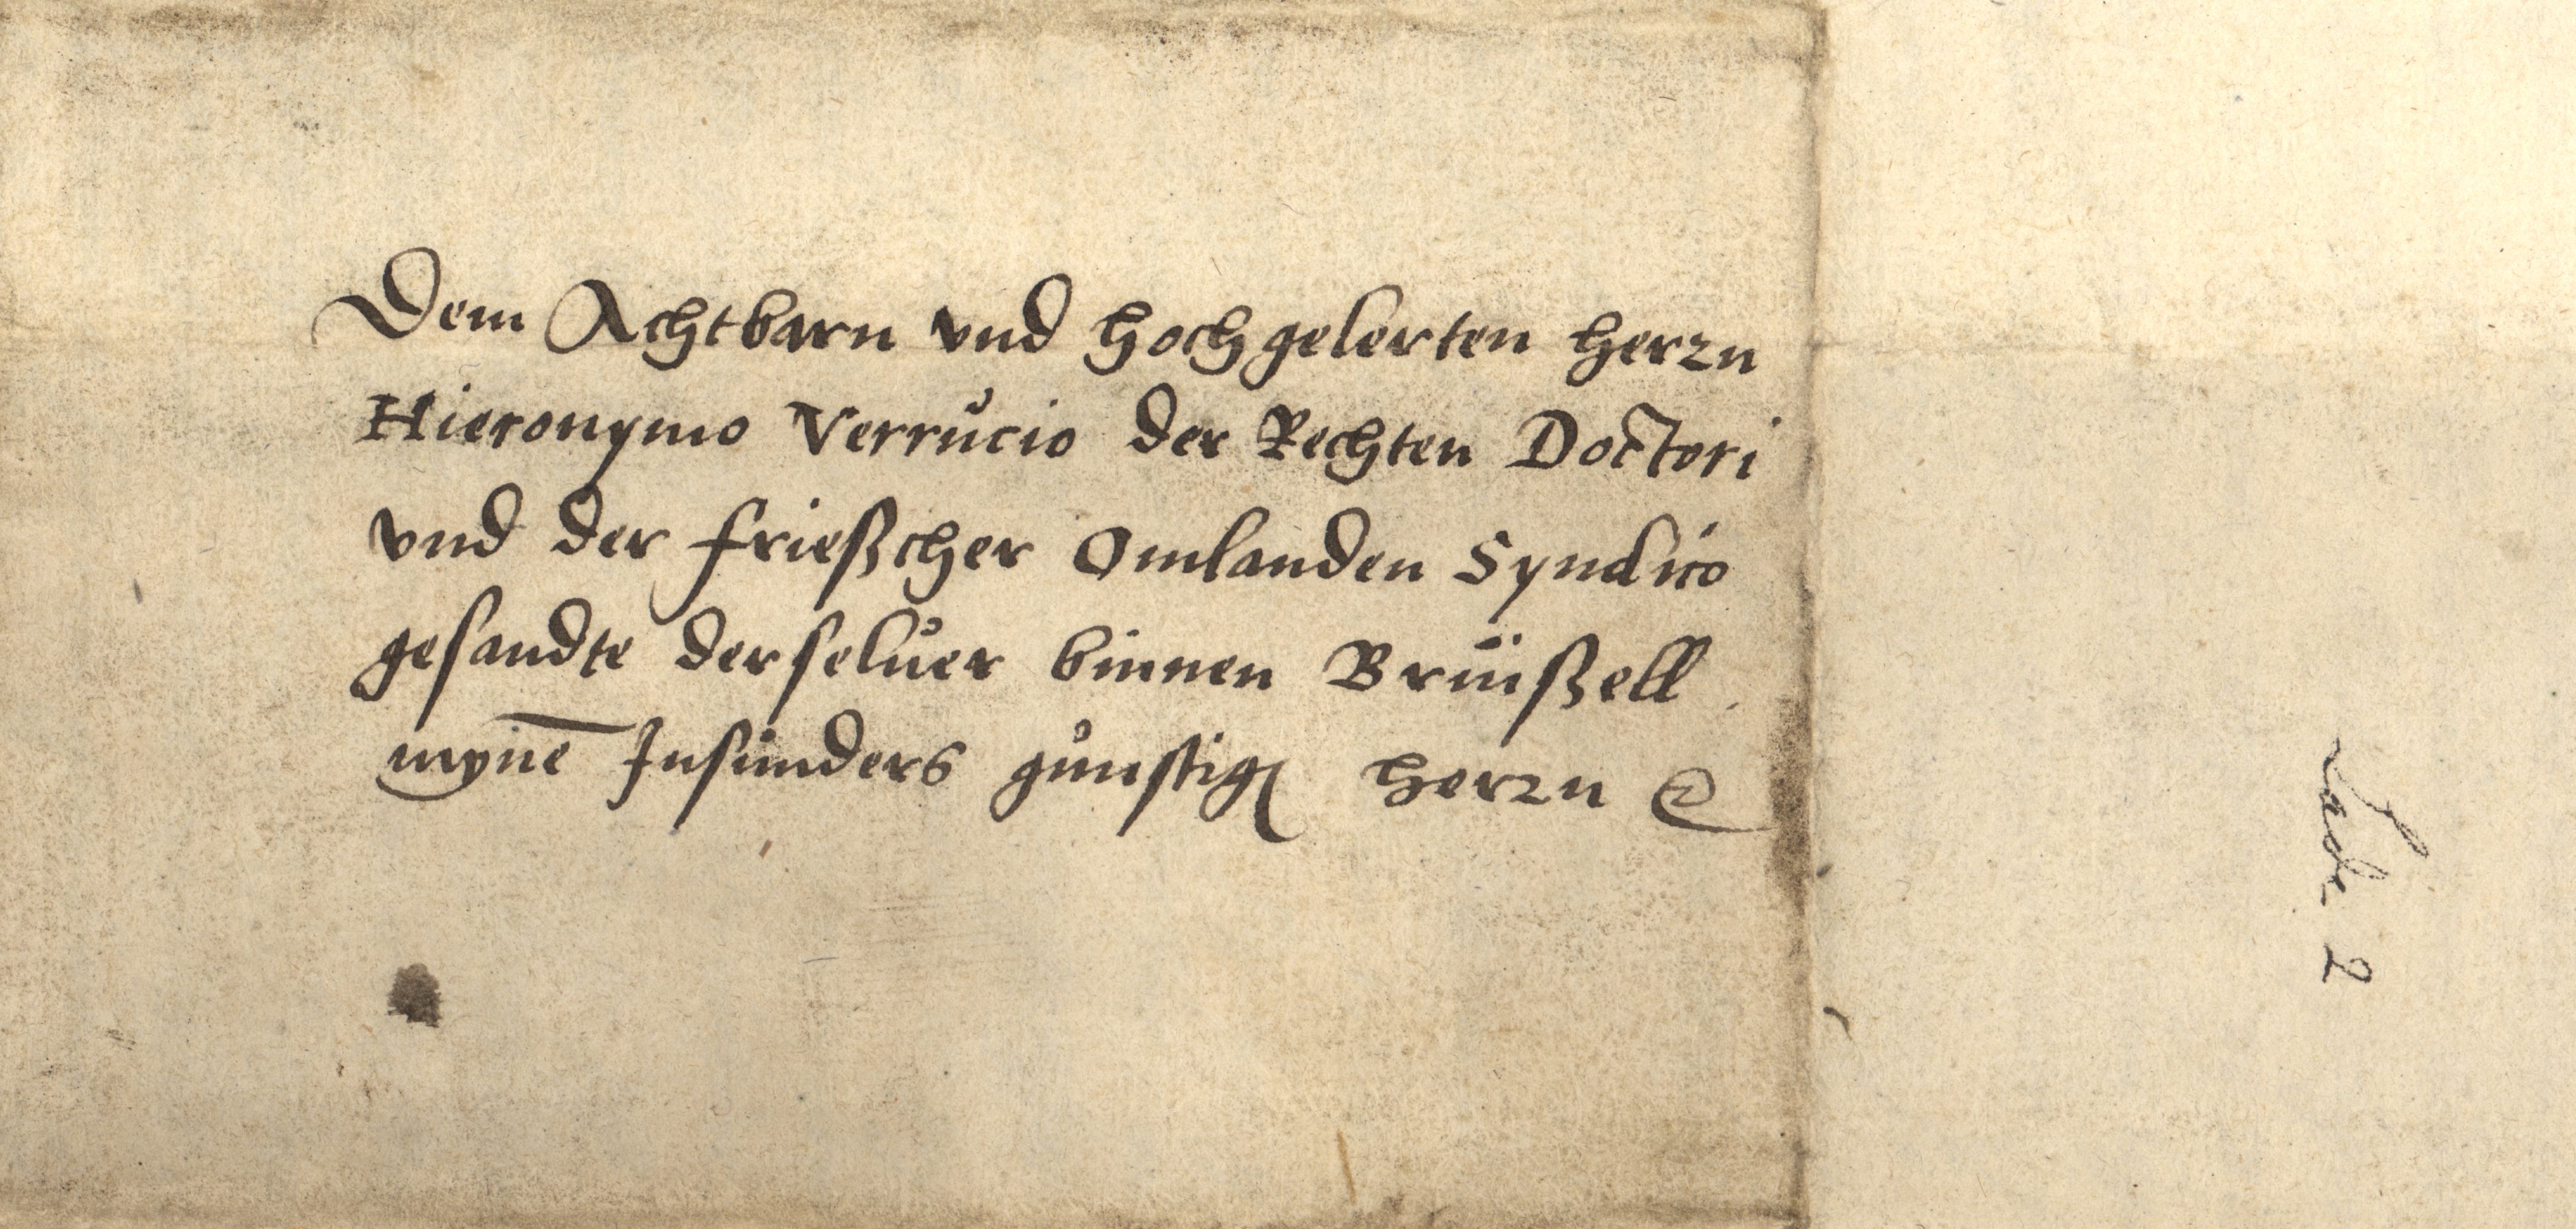 Dem Achtbarn vnd hochgelerten herrn
Hieronymo Verrucio der Rechten Doctori
vnd der frießcher Omlanden Syndico
gesandte derseluer binnen Brüißell
mynē Insunders gunstig herrn
Lade 2